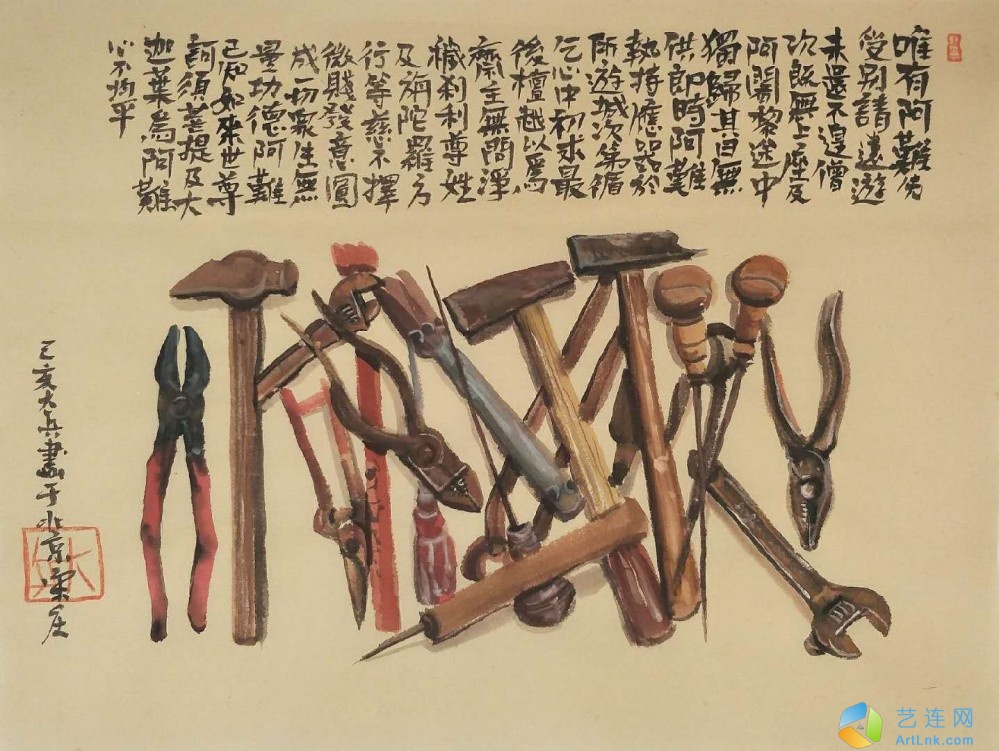 唯有阿難先
受別請遠遊
未還不遑僧
次既無上座及
阿闍黎途中
獨歸其日無
供即時阿難
執持應器於
所遊城次第循
乞心中初求最
後檀越以爲
齋主無問淨
穢刹利尊姓
及旃陀羅方
行等慈不擇
微賤發意圓
成一切衆生無
量功德阿難
已知如來世尊
訶須菩提及大
迦葉爲阿難
心不均平
己亥大兵畫于北京梁庄
艺连网
ArtLnk.com